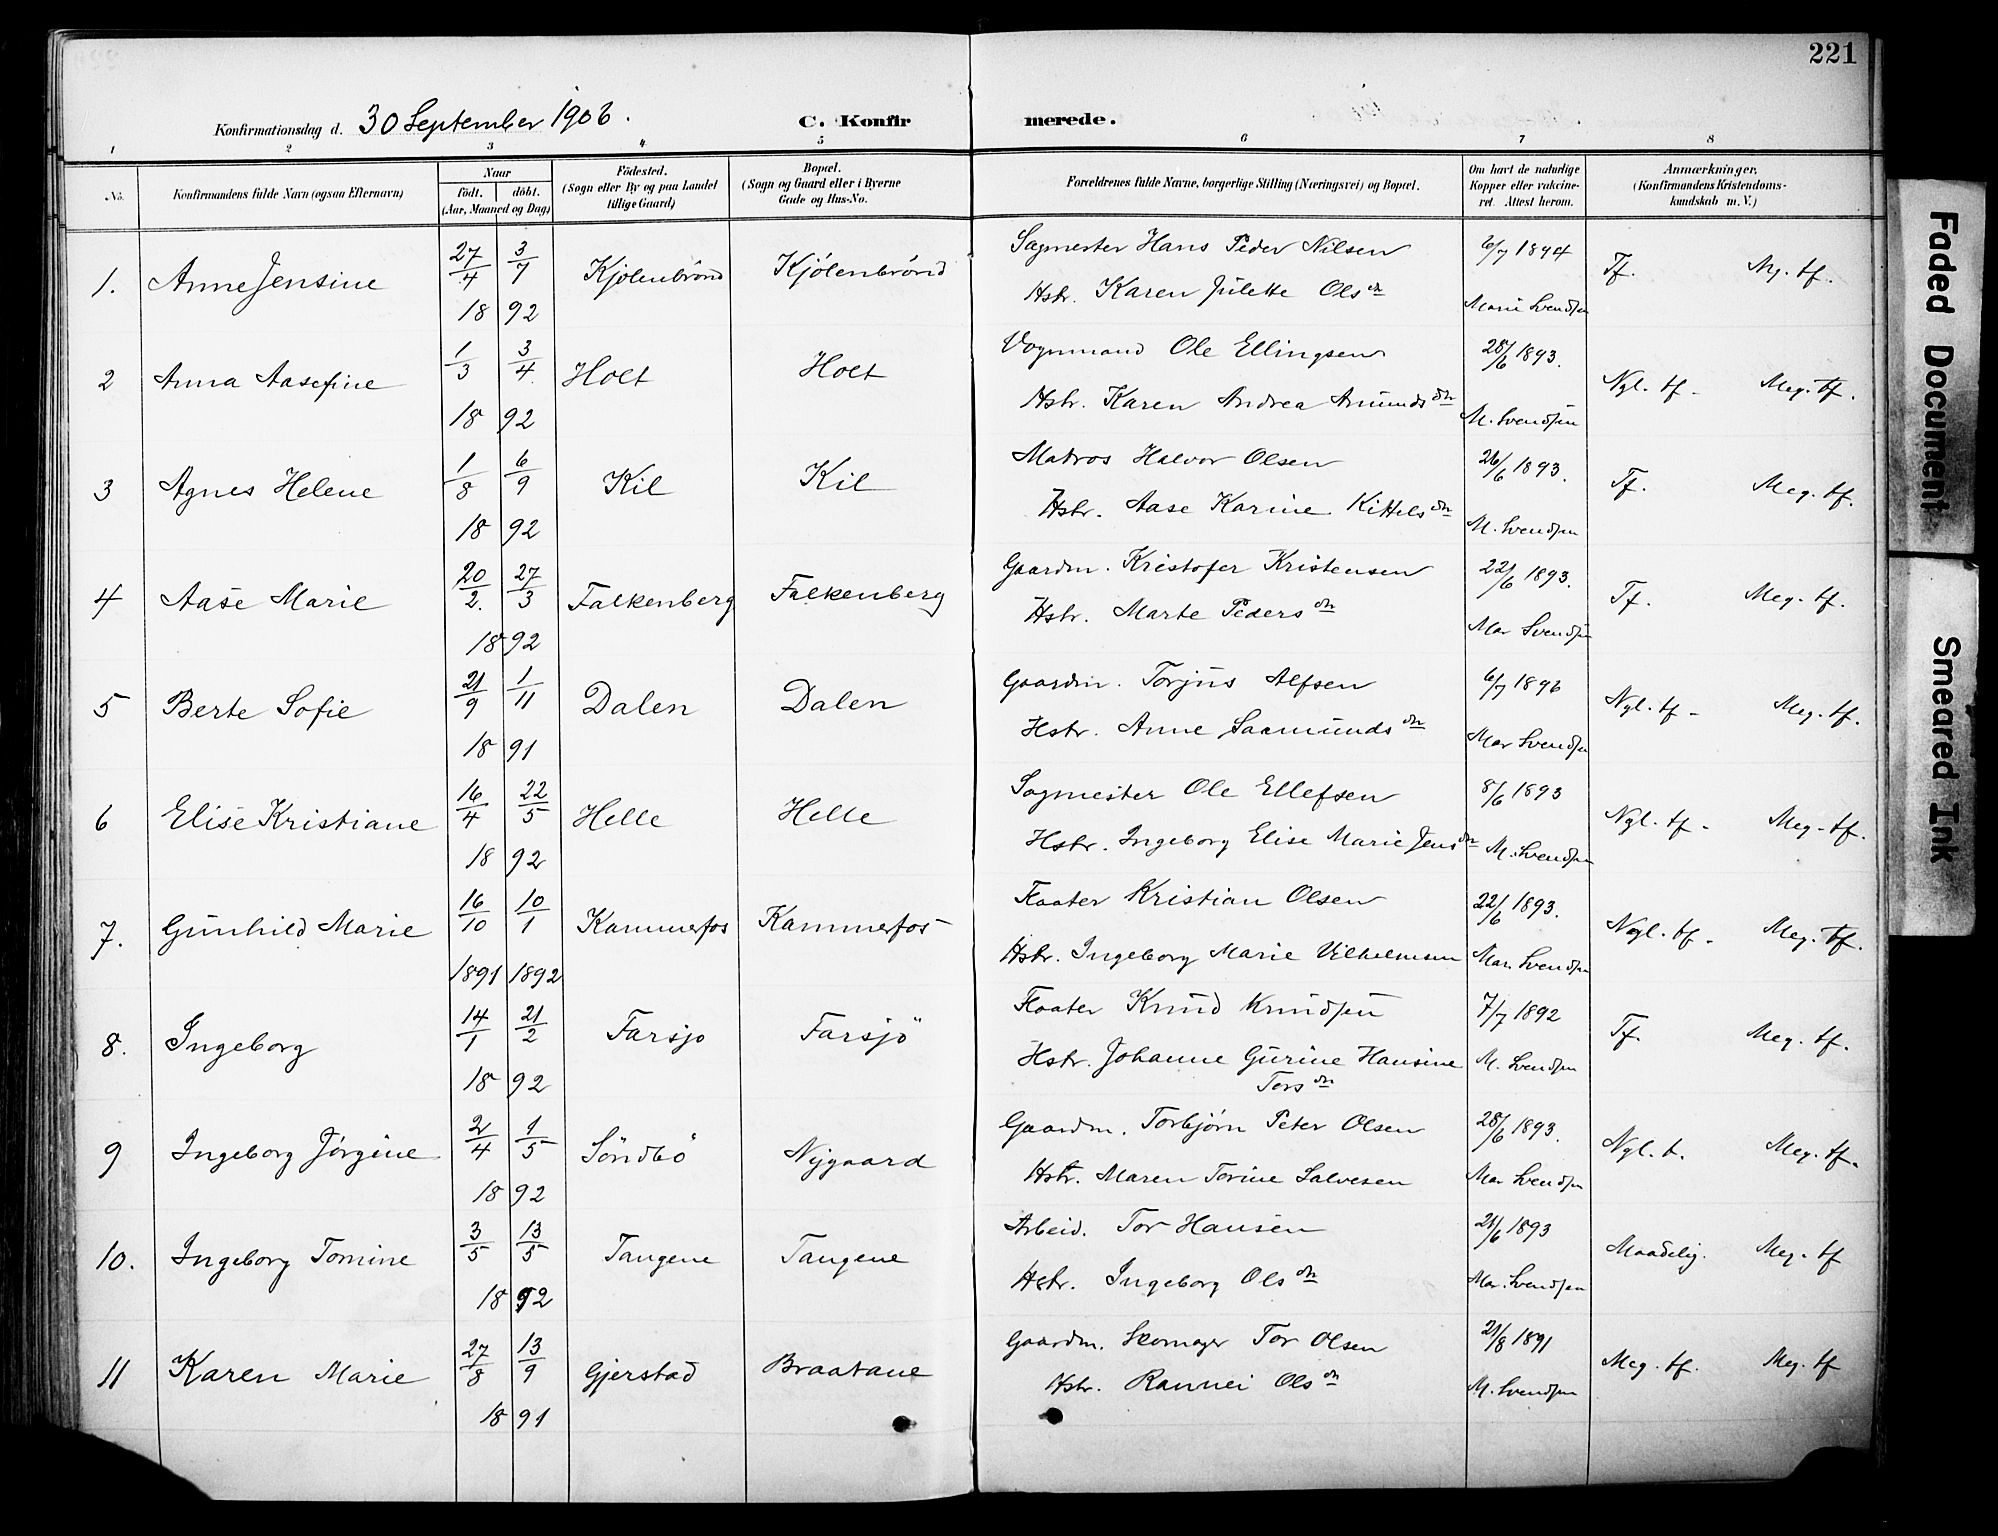 221
Konfirmationsdag d. 30 September 1906. C. Konfirmerede.
1 2 3 4 5 6 7 8
No. Konfirmandens fulde Navn (ogsaa Efternavn) Naar födt. döbt. (Aar, Maaned og Dag) Födested. (Sogn eller By og paa Landet tillige Gaard) Bopæl. (Sogn og Gaard eller i Byerne Gade og Hus-No. Forældrenes fulde Navne, borgerlige Stilling (Næringsvei) og Bopæl. Om havt de naturlige Kopper eller vakcineret. Attest herom. Anmærkninger. (Konfirmandens Kristendomskundskab m. V.)
1. Anne Jensine 27/4 3/7 1892 Kjølenbrønd Kjølenbrønd Sagmester Hans Peder Nilsen 6/7 1894 Tf. Mg. tf.
Hstr. Karen Julette Olsdn Marie Svendsen
2 Anna Aasefine 1/3 3/4 1892 Holt Holt Vognmand Ole Ellingsen 28/6 1893. Ngl. tf - Meg. tf.
Hstr. Karen Andrea Amundsdn M. Svendsen
3 Agnes Helene 1/8 6/9 1892 Kil Kil Matros Halvor Olsen 26/6 1893. Tf. Meg. tf.
Hstr. Aase Karine Kittelsdn M. Svendsen
4 Aase Marie 20/2. 27/3 1892 Falkenberg Falkenberg Gaardm. Kristofer Kristensen 22/6 1893. Tf. Meg. tf.
Hstr. Marte Pedersdn Mar Svendsen
5 Berte Sofie 21/9 1/11 1891 Dalen Dalen Gaardm. Torjus Alfsen 6/7 1896 Ngl. tf - Meg. tf.
Hstr. Anne Saamundsdn Mar Svendsen
6 Elise Kristiane 16/4 22/5 1892 Helle Helle Sagmester Ole Ellefsen 8/6 1893 Ngl. tf - Meg. tf.
Hstr. Ingeborg Elise Marie Jensdn M. Svendsen
7. Gunhild Marie 16/10 10/1 1891 1892 Kammerfos Kammerfos Fløater Kristian Olsen 22/6 1893. Nogl. tf - Meg. tf.
Hstr. Ingeborg Marie Vilhelmsen Mar. Svendsen
8. Ingeborg 14/1 21/2 1892 Farsjø Farsjö Fløater Knud Knudsen 7/7 1892 Tf. Meg. tf.
Hstr. Johanne Gurine Hansine M. Svendsen
Torsdn
9 Ingeborg Jørgine 2/4 1/5 1892 Söndbö Nygaard Gaardm. Torbjørn Peter Olsen 28/6 1893. Ngl. t. Meg. tf.
Hstr. Maren Torine Salvesen Mar Svendsen
10. Ingeborg Tomine 3/5 13/5 1892 Tangene Tangene Arbeid. Tor Hansen 21/6 1893 Maadelig. Meg. tf
Hstr. Ingeborg Olsdn Mar. Svendsen
11 Karen Marie 27/8 13/9 1891 Gjerstad Braatane Gaardm. Skomager Tor Olsen 21/8 1891 Meg. tf. Meg. tf
Hstr. Rannei Olsdn M. Svendsen
Faded Document
Smeared Ink